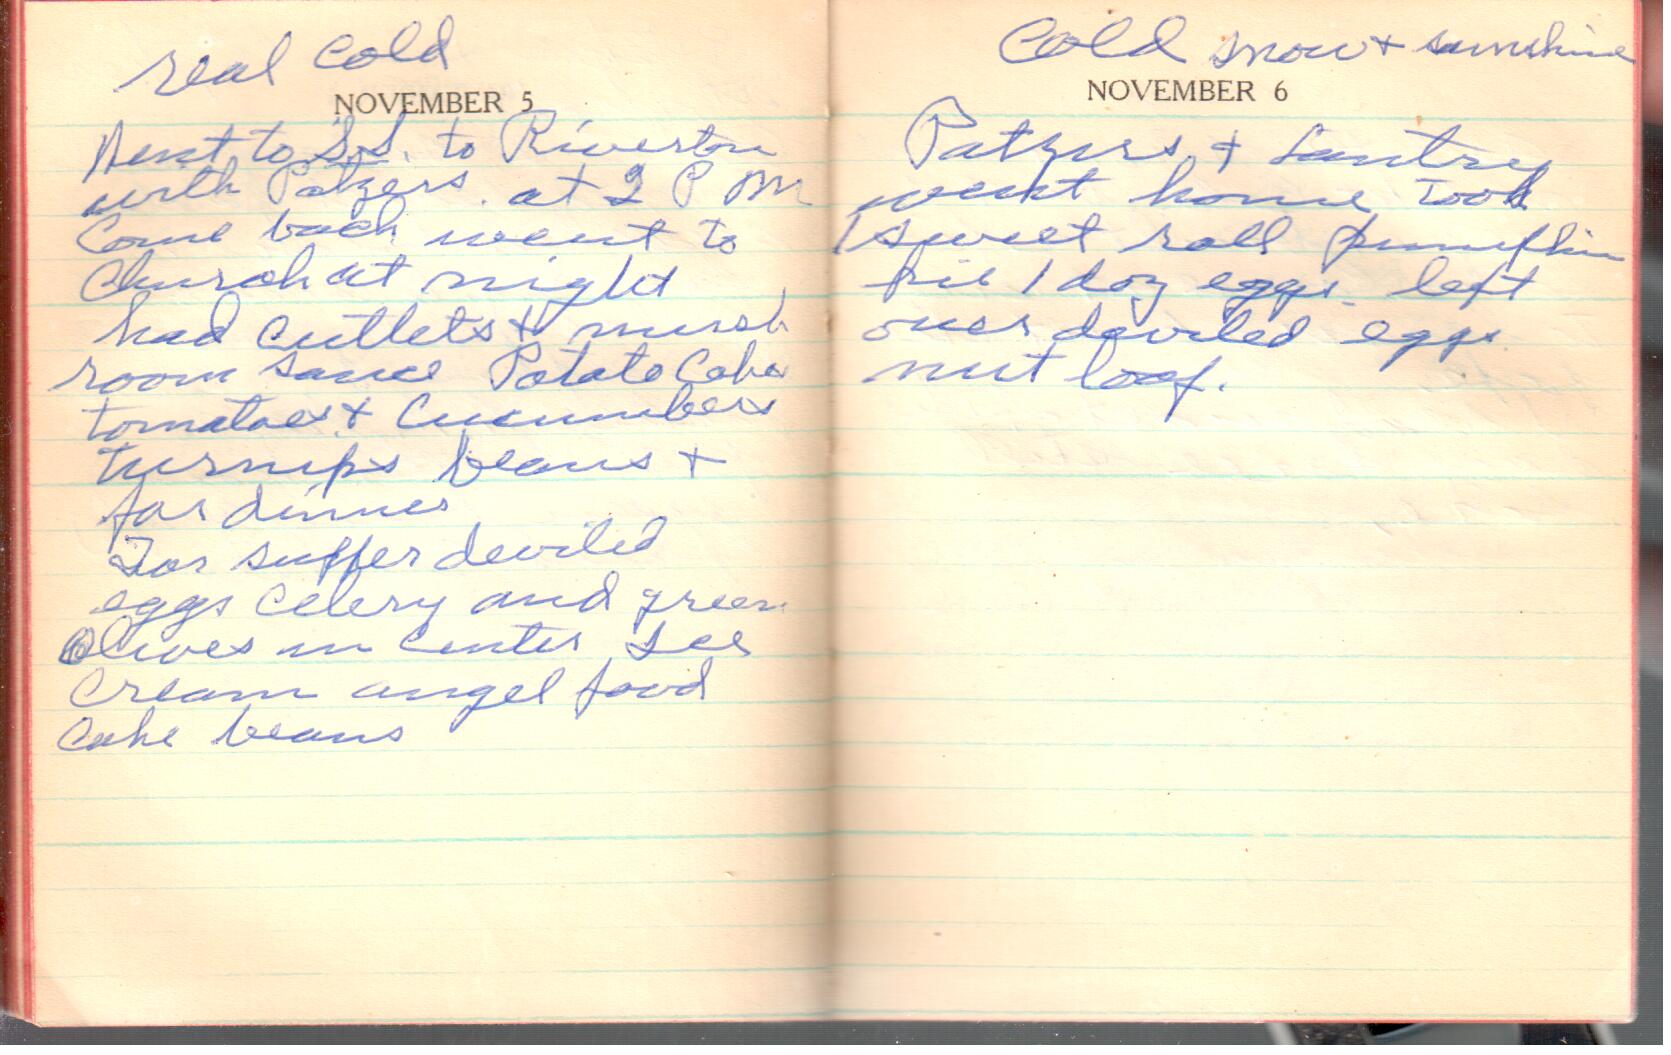 real cold
NOVEMBER 5
Went to S.S. to Riverton
with Patzers. at 2 P M
Come back went to
Church at night
had cutlets & mush
room sauce Potato Cakes
tomatoes & Cucumbers
turnips beans +
for dinner
For supper deviled
eggs Celery and green
Olives in center Ice
Cream angel food
Cake beans
Cold snow + sunshine
NOVEMBER 6
Patzers + Lantry
went home Took
1 sweet roll pumpkin
pie 1 doz eggs. left
over deviled eggs
nut loaf.